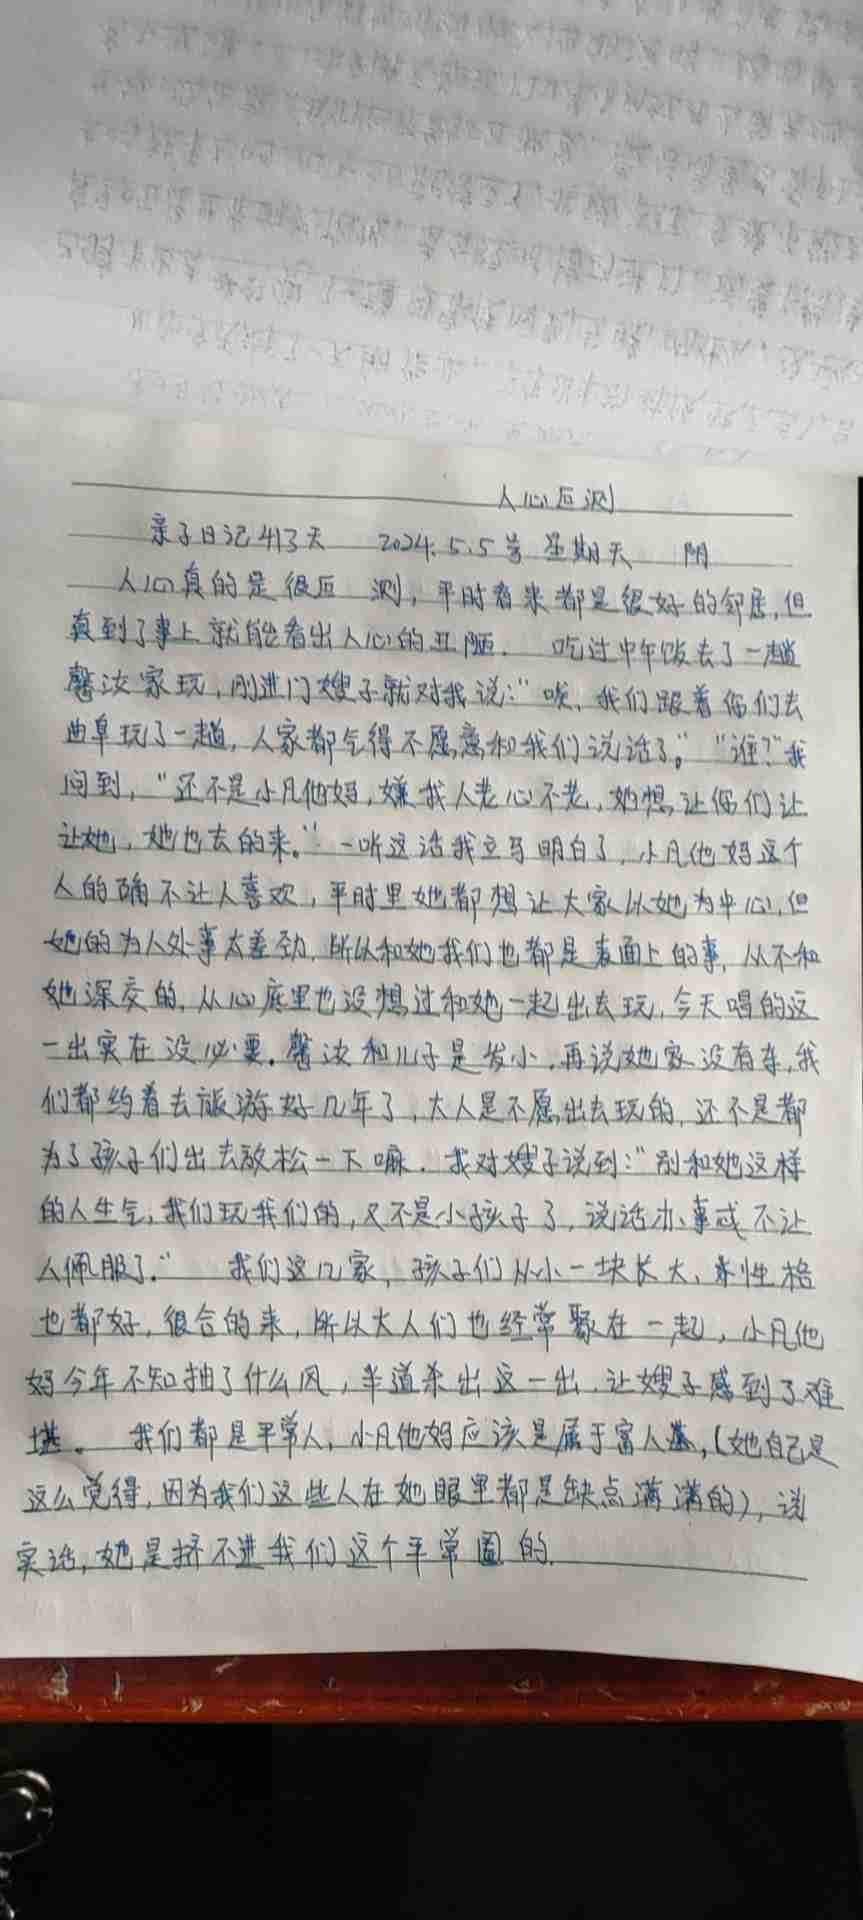 人心叵测
亲子日记413天 2024.5.5号 星期天 阴
人心真的是很叵 测，平时看来都是很好的邻居，但
真到了事上就能看出人心的丑陋． 吃过中午饭去了一趟
馨汝家玩，刚进门嫂子就对我说：“唉，我们跟着你们去
曲阜玩了一趟，人家都气得不愿意和我们说话了。”“谁？”我
问到，“还不是小凡他妈，嫌我人老心不老，她想让你们让
让她，她也去的来。”一听这话我立马明白了，小凡他妈这个
人的确不让人喜欢，平时里她都想让大家以她为中心，但
她的为人处事太差劲，所以和她我们也都是表面上的事，从不和
她深交的，从心底里也没想过和她一起出去玩，今天唱的这
一出实在没必要。馨汝和儿子是发小，再说她家没有车，我
们都约着去旅游好几年了，大人是不愿出去玩的，还不是都
为了孩子们出去放松一下嘛．我对嫂子说到：“别和她这样
的人生气，我们玩我们的，又不是小孩子了，说话办事或不让
人佩服了．” 我们这几家，孩子们从小一块长大，性格
也都好，很合的来，所以大人们也经常聚在一起，小凡他
妈今年不知抽了什么风，半道杀出这一出，让嫂子感到了难
堪。 我们都是平常人，小凡他妈应该是属于富人，（她自己是
这么觉得，因为我们这些人在她眼里都是缺点满满的），说
实话，她是挤不进我们这个平常圈的．